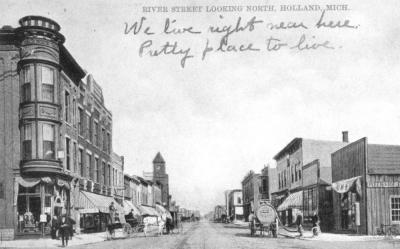 RIVER STREET LOOKING NORTH, HOLLAND, MICH.
We live right near here.
Pretty place to live.